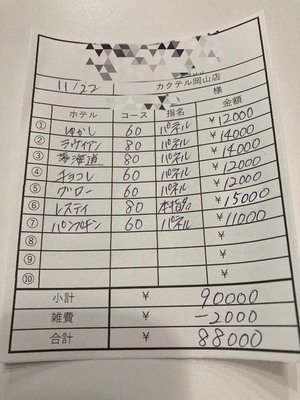 11/22 カクテル岡山店
い 様
ホテル コース 指名 金額
① ゆがし 60 パネル ¥12000
② ラヴィアン 80 パネル ¥14000
③ 夢海道 80 パネル ¥14000
④ チョコレ 60 パネル ¥12000
⑤ グロー 60 パネル ¥12000
⑥ レスティ 80 本指名 ¥15000
⑦ パンプキン 60 パネル ¥11000
⑧ ¥
⑨ ¥
⑩ ¥
小計 ¥ 90000
雑費 ¥ -2000
合計 ¥ 88000